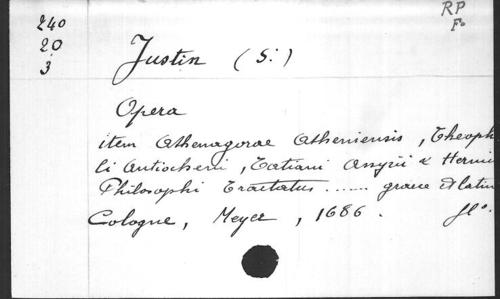 240
20
3
RP
F.
Justin (S.)
Opera
item Athenagorae Atheniensis, Theoph
li Antiocheni, Tatiani Assyrii & Hermi
Philosophi Tractatus ...... graece et latin
Cologne, Meyer, 1686. fl°.